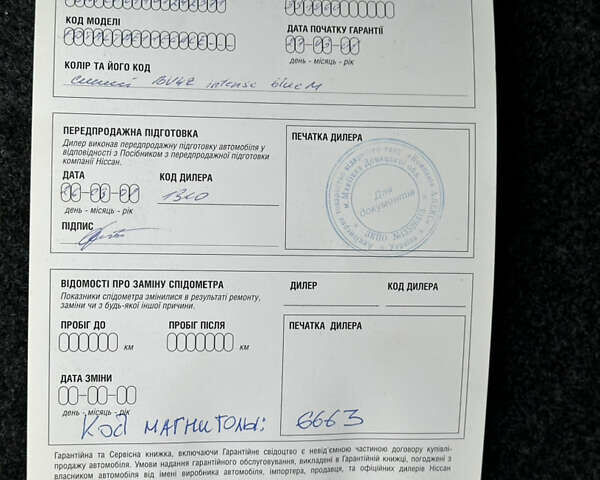 КОД МОДЕЛІ
ДАТА ПОЧАТКУ ГАРАНТІЇ
день - місяць - рік
КОЛІР ТА ЙОГО КОД
синий BW42 intense blue M
ПЕРЕДПРОДАЖНА ПІДГОТОВКА
Дилер виконав передпродажну підготовку автомобіля у
відповідності з Посібником з передпродажної підготовки
компанії Ніссан.
ДАТА
КОД ДИЛЕРА
день - місяць - рік
ПІДПИС
ПЕЧАТКА ДИЛЕРА
Для
документів
ВІДОМОСТІ ПРО ЗАМІНУ СПІДОМЕТРА
Показники спідометра змінилися в результаті ремонту,
заміни чи з будь-якої іншої причини.
ДИЛЕР
КОД ДИЛЕРА
ПРОБІГ ДО
ПРОБІГ ПІСЛЯ
000000 км
0000000 км
ПЕЧАТКА ДИЛЕРА
ДАТА ЗМІНИ
00-00-00
день - місяць - рік
Код магнитолы: 6663
Гарантійна та Сервісна книжка, включаючи Гарантійне свідоцтво є невід'ємною частиною договору купівлі-
продажу автомобіля. Умови надання гарантійного обслуговування, викладені в Гарантійній книжці, погоджені з
власником автомобіля від імені виробника автомобіля, імпортера, продавця, та офіційних дилерів Ніссан